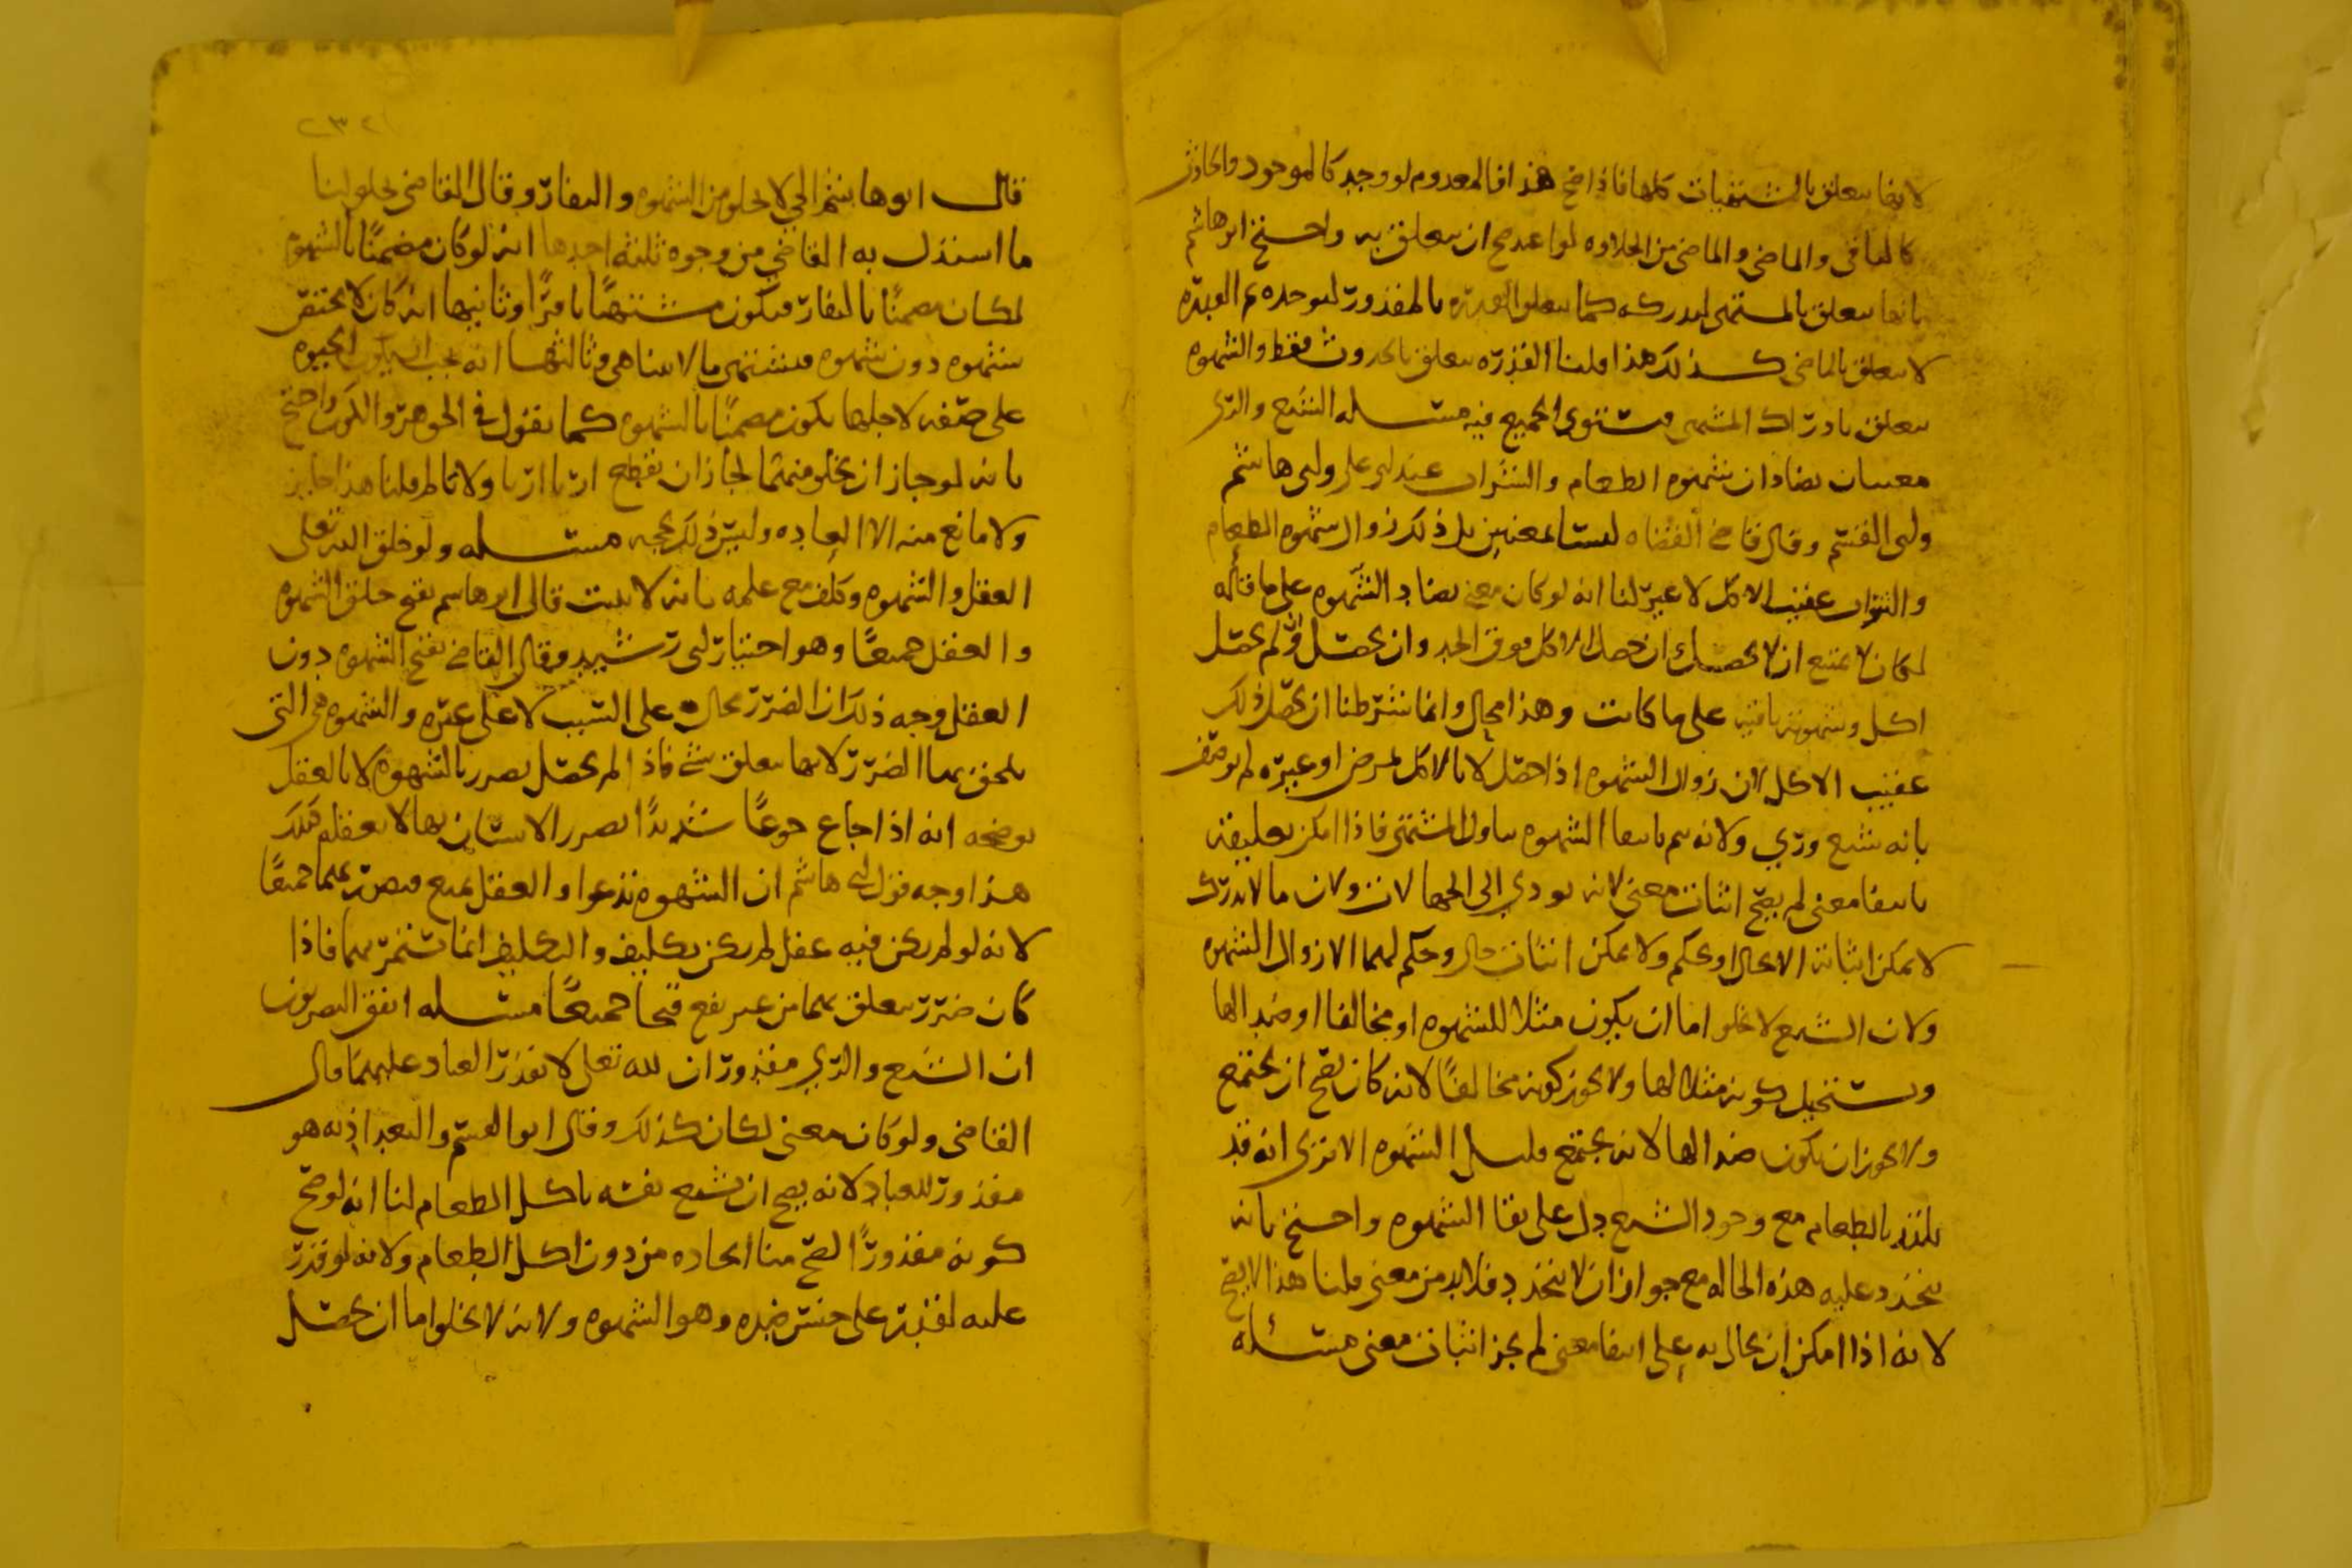 لانها سعلق بالمشتهيات كلها فاذا صح هذا فالمعدوم لو وجد كالموجود والحادث
كالباقي والماضي والماضي من الحلاوه لو اعيد صح ان سعلق به واحتج ابو هاشم
بانها سعلق بالمشتهى ليدركه كما سعلق القدره بالمقدور ليوجده ثم القدره
لا سعلق بالماضي كذلك هذا قلنا القدره سعلق بالحدوث فقط والشهوه
سعلق بادراك المشتهى فستوي الجميع فيه مسله الشبع والري
معنيان يضادان شهوه الطعام والشراب عند ابي علي وابي هاشم
وابي القسم وقال قاضي القضاه ليسا بمعنيين بل ذلك زوال شهوه الطعام
والشراب عقيب الاكل لا غير لنا انه لو كان معنى يضاد الشهوه على ما قاله
لكان لا يمتنع ان لا يحصل وان حصل الاكل فوق الحد وان يحصل ولم يحصل
اكل وشهوته باقيه على ما كانت وهذا محال وانما شرطنا ان يحصل ذلك
عقيب الاكل لان زوال الشهوه اذا حصل لا بالاكل لمرض او غيره لم يوصف
بانه شبع وري ولانه سم بانتفا الشهوه ساول المشتهى فاذا امكن تعليقه
بانتفا معنى لم يصح اثبات معنى لانه يودي الى الجهالات ولان ما لا يدرك
لا يمكن اثباته الا بحال او بحكم ولا يمكن اثبات حال وحكم لهما الا زوال الشهوه
ولان الشبع لا يخلوا اما ان يكون مثلا للشهوه او مخالفا او ضدا لها
ويستحيل كونه مثلا لها ولا يجوز كونه مخالفا لانه كان يصح ان يجتمع
ولا يجوز ان يكون ضدا لها لانه يجتمع وقليل الشهوه الا ترى انه قد
يلتذ بالطعام مع وجود الشبع دل على بقا الشهوه واحتج بانه
يتجدد عليه هذه الحاله مع جواز ان لا يتجدد فلا بد من معنى قلنا هذا لا يصح
لانه اذا امكن ان يحال به على انتفا معنى لم يجز اثبات معنى مسئله
٢٣٢
قال ابو هاشم الحي لا يخلو من الشهوه والنفار وقال القاضي يخلو لنا
ما استدل به القاضي من وجوه ثلثه احدها انه لو كان مضمنًا بالشهوه
لكان مضمنًا بالنفار فيكون مشتهيًا نافرًا وثانيها انه كان لا يختص
بشهوه دون شهوه فيشتهي ما لا يتناهى وثالثها انه يجب ان يكون الحيوه
على صفه لاجلها يكون مضمنًا بالشهوه كما نقول في الجوهر والكون واحتج
بانه لو جاز ان يخلو منهما لجاز ان نقطع اربًا اربًا ولا يالم قلنا هذا جايز
ولا مانع منه الا العاده وليس ذلك بحجه مسله ولو خلق الله تعلى
العقل والشهوه وكلف مع علمه بانه لا يثبت قال ابو هاشم يقبح خلق الشهوه
والعقل جميعًا وهو اختيار ابي رشيد وقال القاضي يقبح الشهوه دون
العقل وجه ذلك ان الضرر يحال على السبب لا على غيره والشهوه هي التي
يلحق بها الضرر لانها سعلق بشي فاذا لم يحصل يضرر بالشهوه لا بالعقل
يوضحه انه اذا جاع جوعًا شديدًا يضرر الانسان بها لا بعقله فكذلك
هذا وجه قول ابي هاشم ان الشهوه تدعوا والعقل يمنع فيضر بهما جميعًا
لانه لو لم يكن فيه عقل لم يكن تكليف والتكليف انما يستمر بهما فاذا
كان ضرر سعلق بهما من غير نفع قبحا جميعًا مسله اتفق البصريون
ان الشبع والري مقدوران لله تعلى لا يقدر العباد عليهما قال
القاضي ولو كان معنى لكان كذلك وقال ابو القسم والبغداذيه هو
مقدور للعباد لانه يصح ان يشبع نفسه باكل الطعام لنا انه لو صح
كونه مقدورًا لصح منا ايجاده من دون اكل الطعام ولانه لو قدر
عليه لقدر على جنس ضده وهو الشهوه ولانه لا يخلوا اما ان يحصل